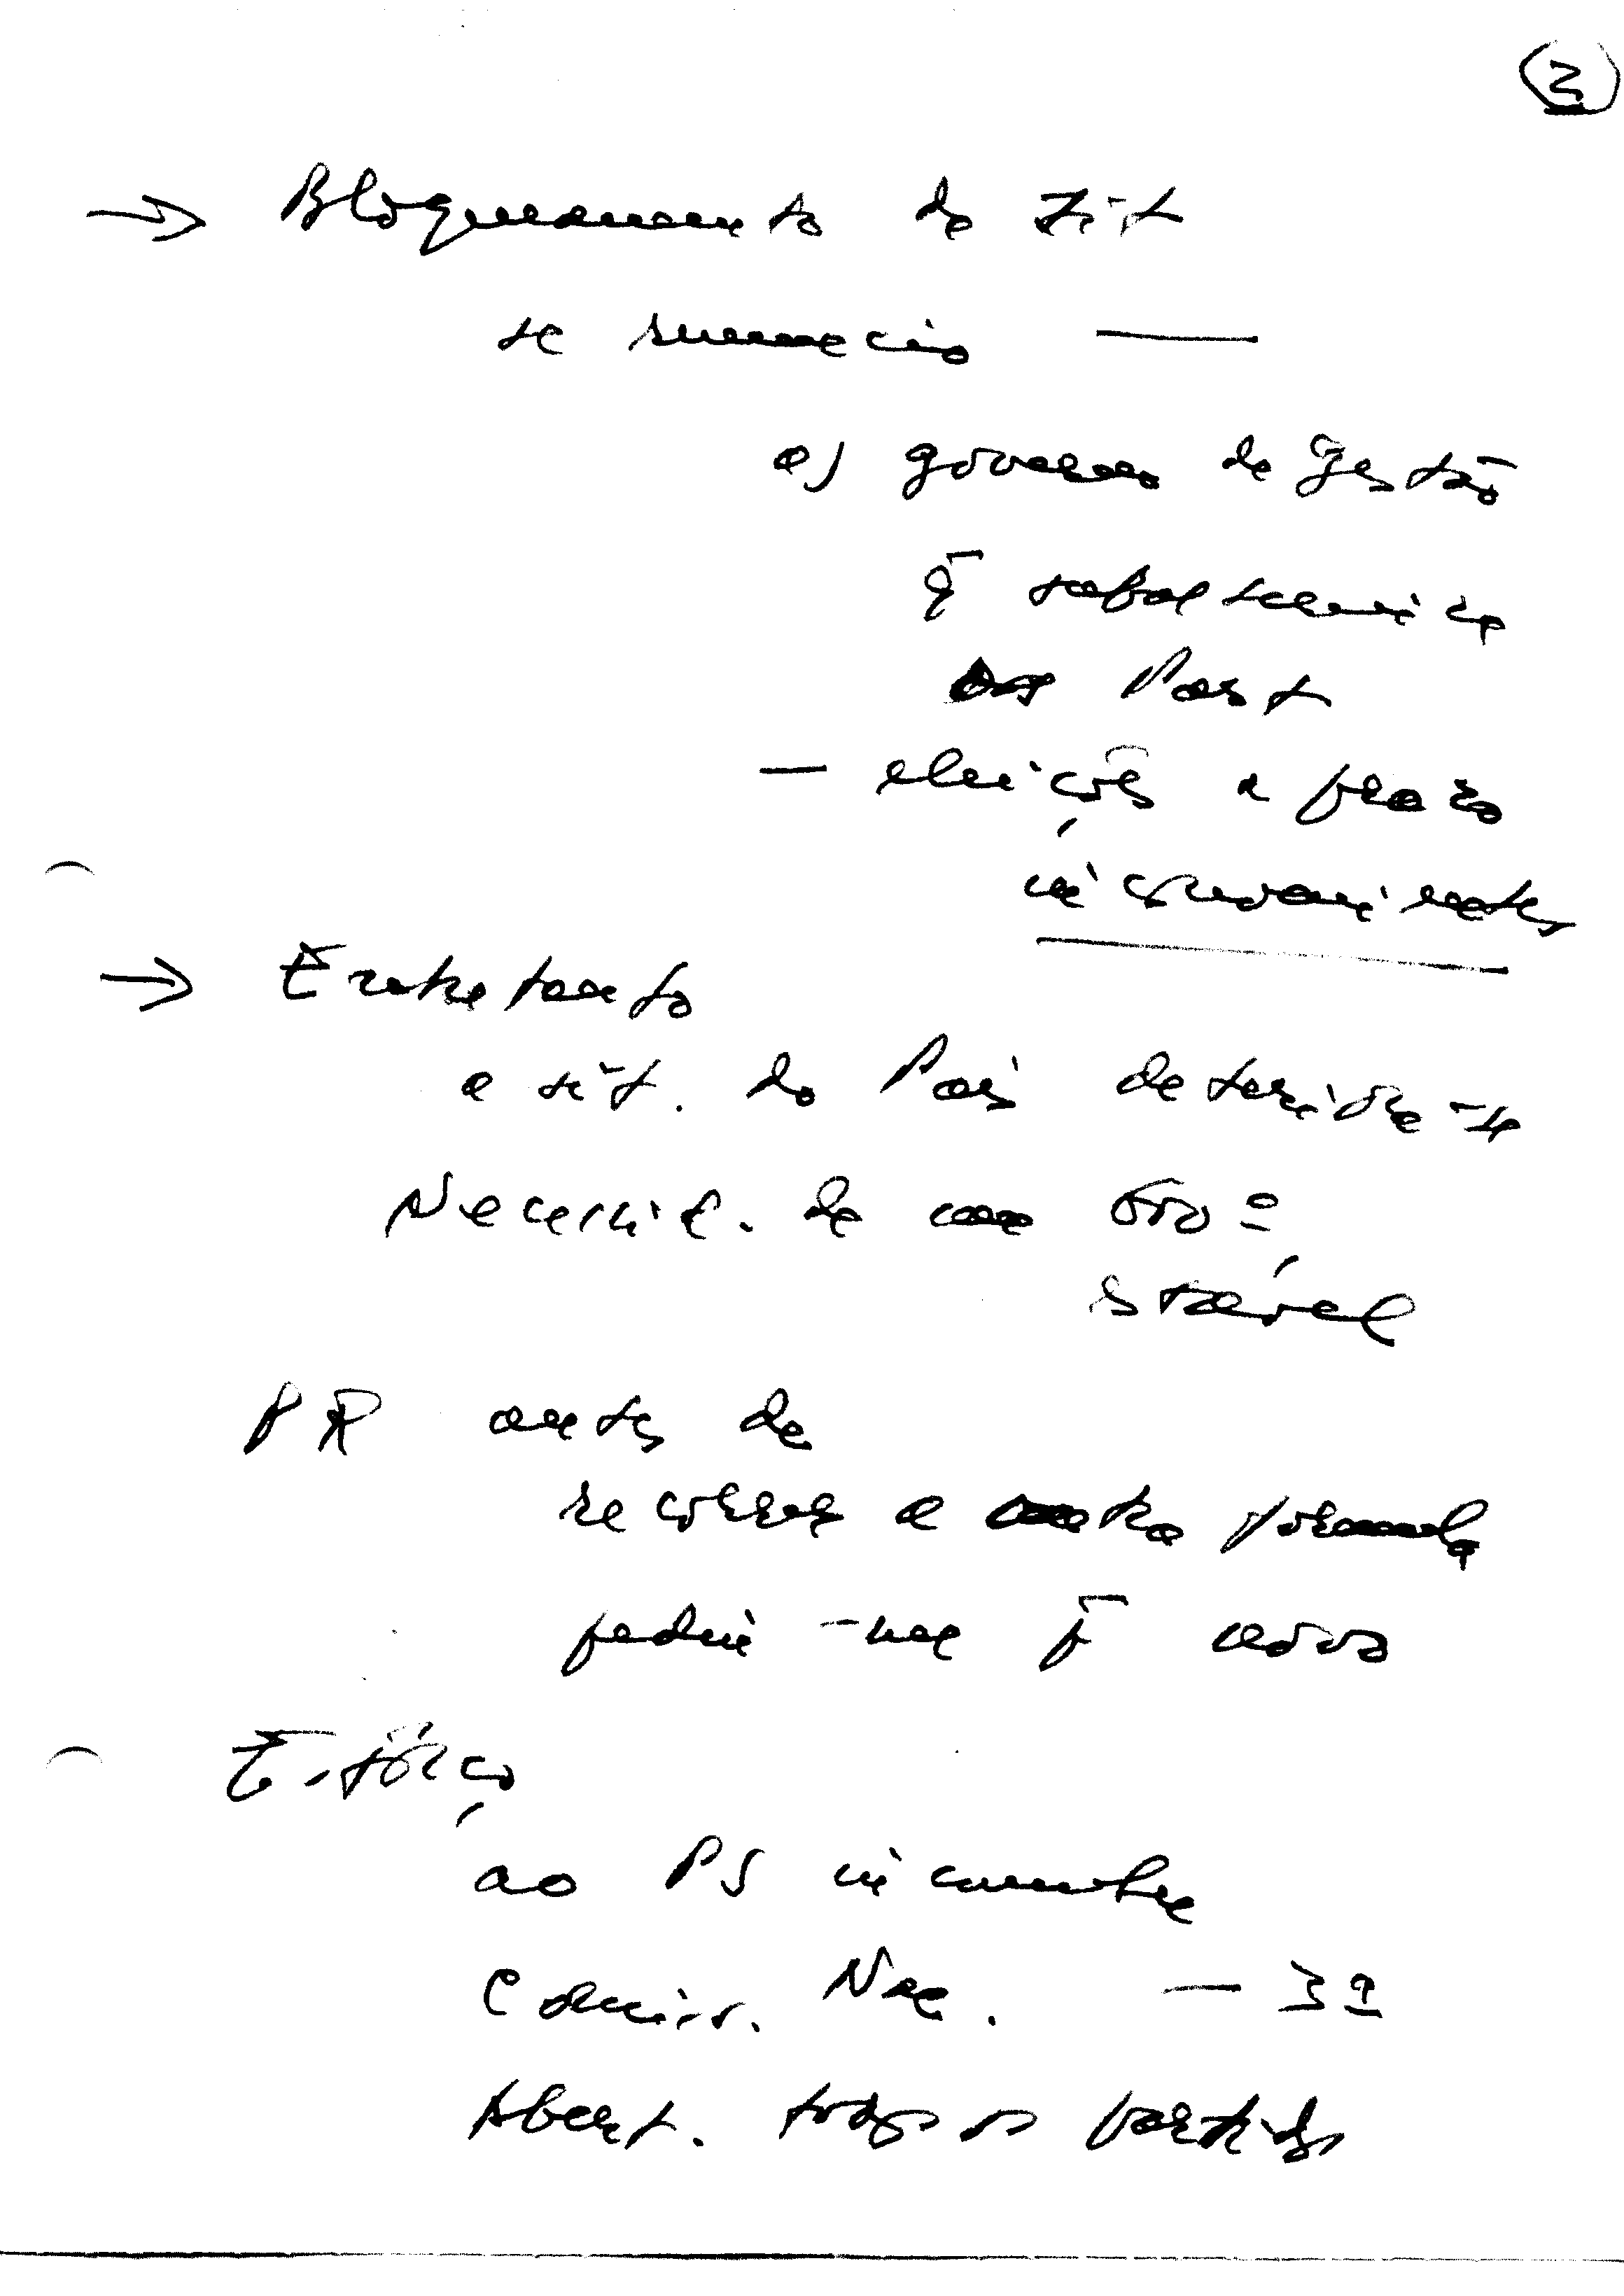 2
→ Bloqueamento da sit
se renuncio —
a) governo de gestão
q̄ satisf
os Part
— eleições a prazo
inconvenientes
→ Entretanto
a sit. do País deteriora-se
Necessid. de um Govº
estável
PR antes de
recorrer a outra fórmula
pediu-me p̄ novo
Esforço
ao PS incumbe
Comiss. Nac. — 3ª
Abert. todos os partidos